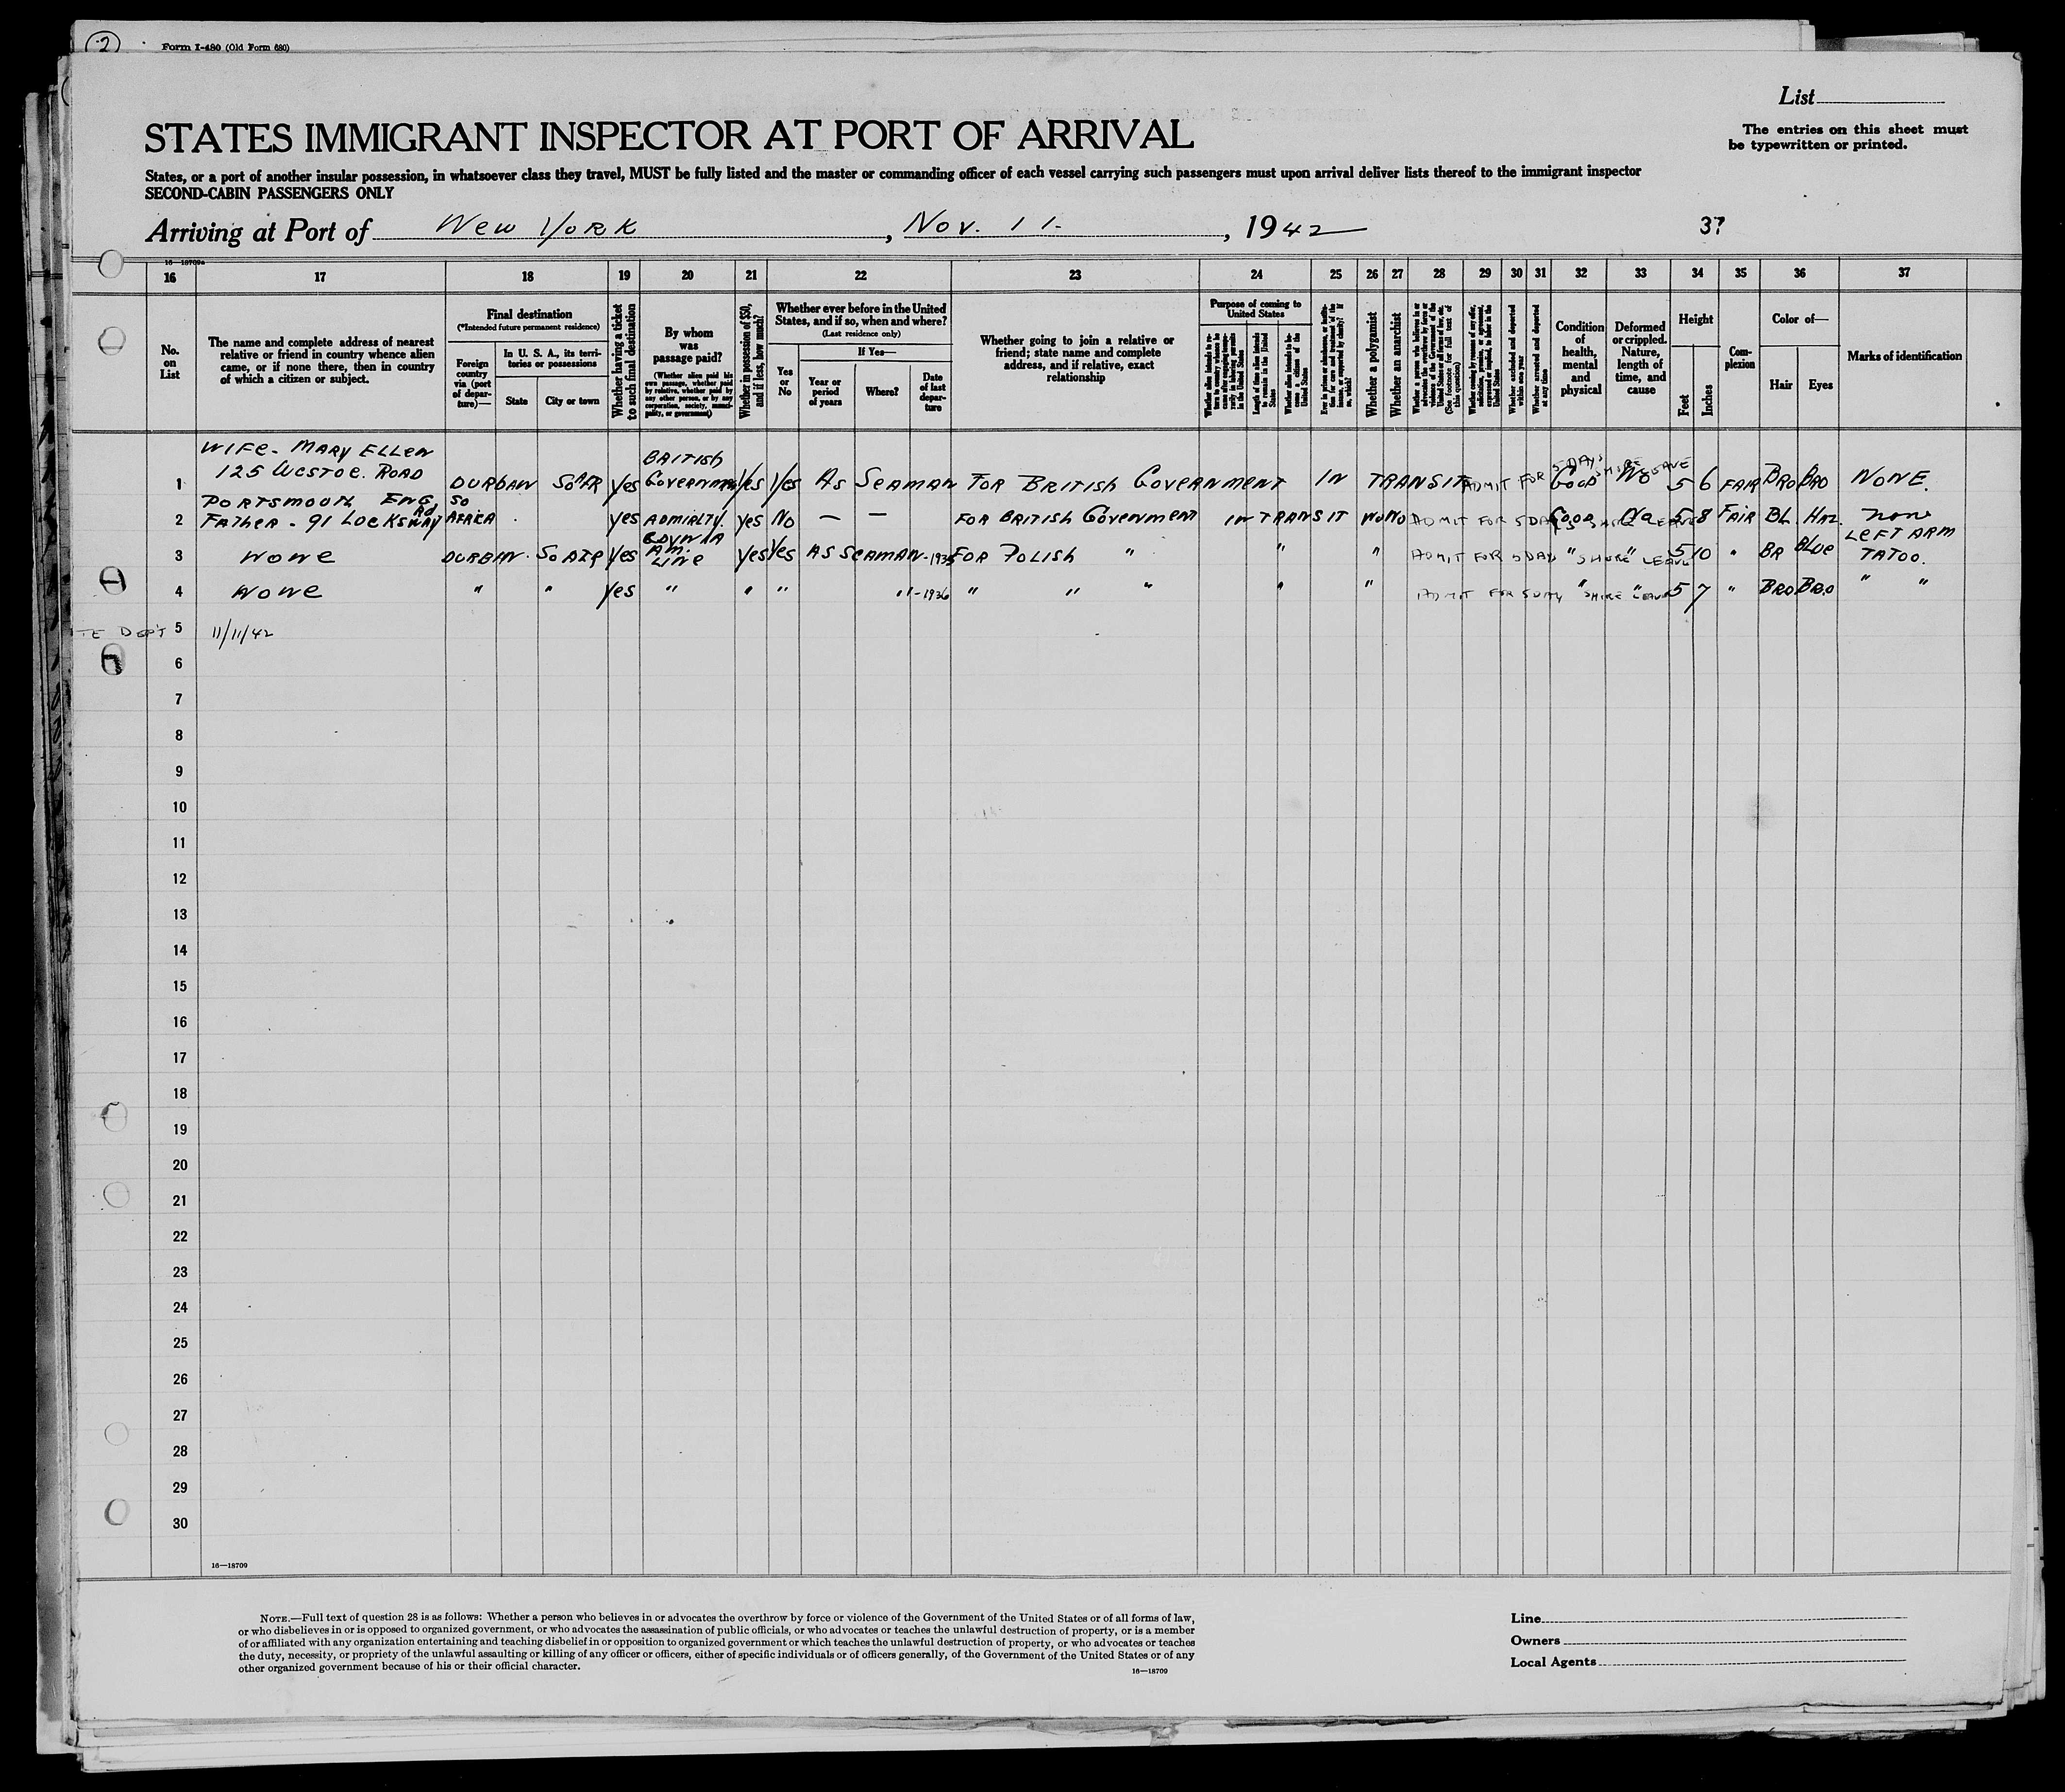 2
Form I-480 (Old Form 680)
List
STATES IMMIGRANT INSPECTOR AT PORT OF ARRIVAL
The entries on this sheet must
be typewritten or printed.
States, or a port of another insular possession, in whatsoever class they travel, MUST be fully listed and the master or commanding officer of each vessel carrying such passengers must upon arrival deliver lists thereof to the immigrant inspector
SECOND-CABIN PASSENGERS ONLY
Arriving at Port of New York, Nov. 11, 1942
37
16 17 18 19 20 21 22 23 24 25 26 27 28 29 30 31 32 33 34 35 36 37
No.
on
List
The name and complete address of nearest
relative or friend in country whence alien
came, or if none there, then in country
of which a citizen or subject.
Final destination
(*Intended future permanent residence)
Foreign
country
via (port
of depar-
ture)—
In U. S. A., its terri-
tories or possessions
State
City or town
Whether having a ticket
to such final destination
By whom
was
passage paid?
(Whether alien paid his
own passage, whether paid
by relative, whether paid by
any other person, or by any
corporation, society, munici-
pality, or government)
Whether in possession of $50,
and if less, how much?
Whether ever before in the United
States, and if so, when and where?
(Last residence only)
If Yes—
Yes
or
No
Year or
period
of years
Where?
Date
of last
depar-
ture
Whether going to join a relative or
friend; state name and complete
address, and if relative, exact
relationship
Purpose of coming to
United States
Length of time alien intends
to remain in the United
States
Whether alien intends to be-
come a citizen of the
United States
Whether a polygamist
Whether an anarchist
Whether excluded and deported
within one year
Whether arrested and deported
at any time
Condition
of
health,
mental
and
physical
Deformed
or crippled.
Nature,
length of
time, and
cause
Height
Feet
Inches
Com-
plexion
Color of—
Hair
Eyes
Marks of identification
WIFE - MARY ELLEN
125 WESTOE. ROAD
1 PORTSMOUTH ENG DURBAN SO AFR Yes BRITISH Government Yes Yes As SEAMAN FOR BRITISH GOVERNMENT IN TRANSIT ADMIT FOR 5 DAYS SHORE LEAVE GOOD NO 5 6 FAIR BRO BRO NONE.
2 FATHER - 91 LOCKSWAY Rd SO AFRICA Yes ADMIRALTY. Yes No — — FOR BRITISH GOVERNMENT IN TRANSIT NO NO ADMIT FOR 5 DAYS SHORE LEAVE GOOD NO 5 8 FAIR BL. HAZ. NONE
3 NONE DURBAN SO AFR Yes GDYNIA AM. LINE Yes Yes AS SEAMAN - FOR POLISH " " " ADMIT FOR 5 DAY SHORE LEAVE " " 5 10 " BR BLUE LEFT ARM TATOO.
4 NONE " " Yes " " " " - 1936 " " " " " ADMIT FOR 5 DAY SHORE LEAVE " " 5 7 " BRO BRO " "
TE DEPT 5 11/11/42
6
7
8
9
10
11
12
13
14
15
16
17
18
19
20
21
22
23
24
25
26
27
28
29
30
16—18709
NOTE.—Full text of question 28 is as follows: Whether a person who believes in or advocates the overthrow by force or violence of the Government of the United States or of all forms of law,
or who disbelieves in or is opposed to organized government, or who advocates the assassination of public officials, or who advocates or teaches the unlawful destruction of property, or is a member
of or affiliated with any organization entertaining and teaching disbelief in or opposition to organized government or which teaches the unlawful destruction of property, or who advocates or teaches
the duty, necessity, or propriety of the unlawful assaulting or killing of any officer or officers, either of specific individuals or of officers generally, of the Government of the United States or of any
other organized government because of his or their official character.
16—18709
Line
Owners
Local Agents